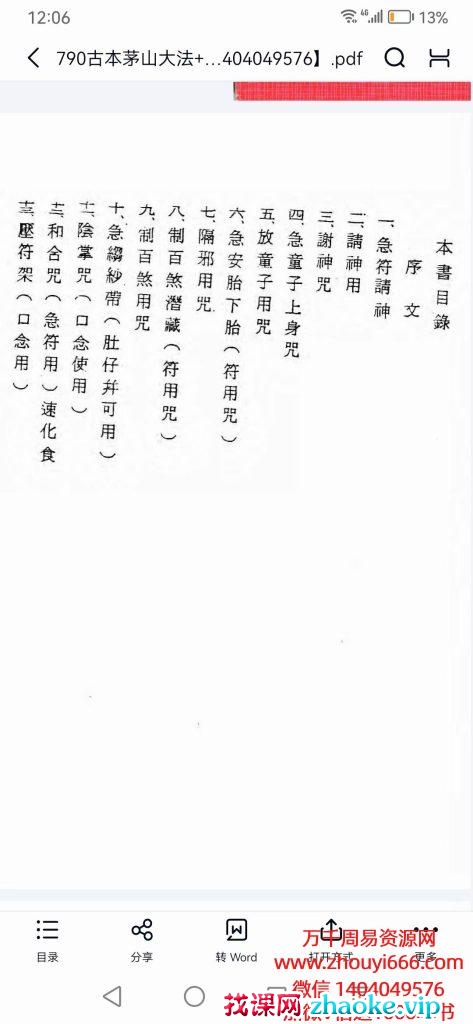 12:06
4G
13%
790古本茅山大法+...404049576】.pdf
本書目錄
序文
一、急符請神
二、請神用
三、謝神咒
四、急童子上身咒
五、放童子用咒
六、急安胎下胎（符用咒）
七、隔邪用咒
八、制百煞潛藏（符用咒）
九、制百煞用咒
十、急縐紗帶（肚仔并可用）
十一、陰掌咒（口念使用）
十二、和合咒（急符用）速化食
十三、壓符架（口念用）
目录
分享
转 Word
打开方式
更多
万千周易资源网
www.zhouyi666.com
微信 1404049576
找课网 zhaoke.vip